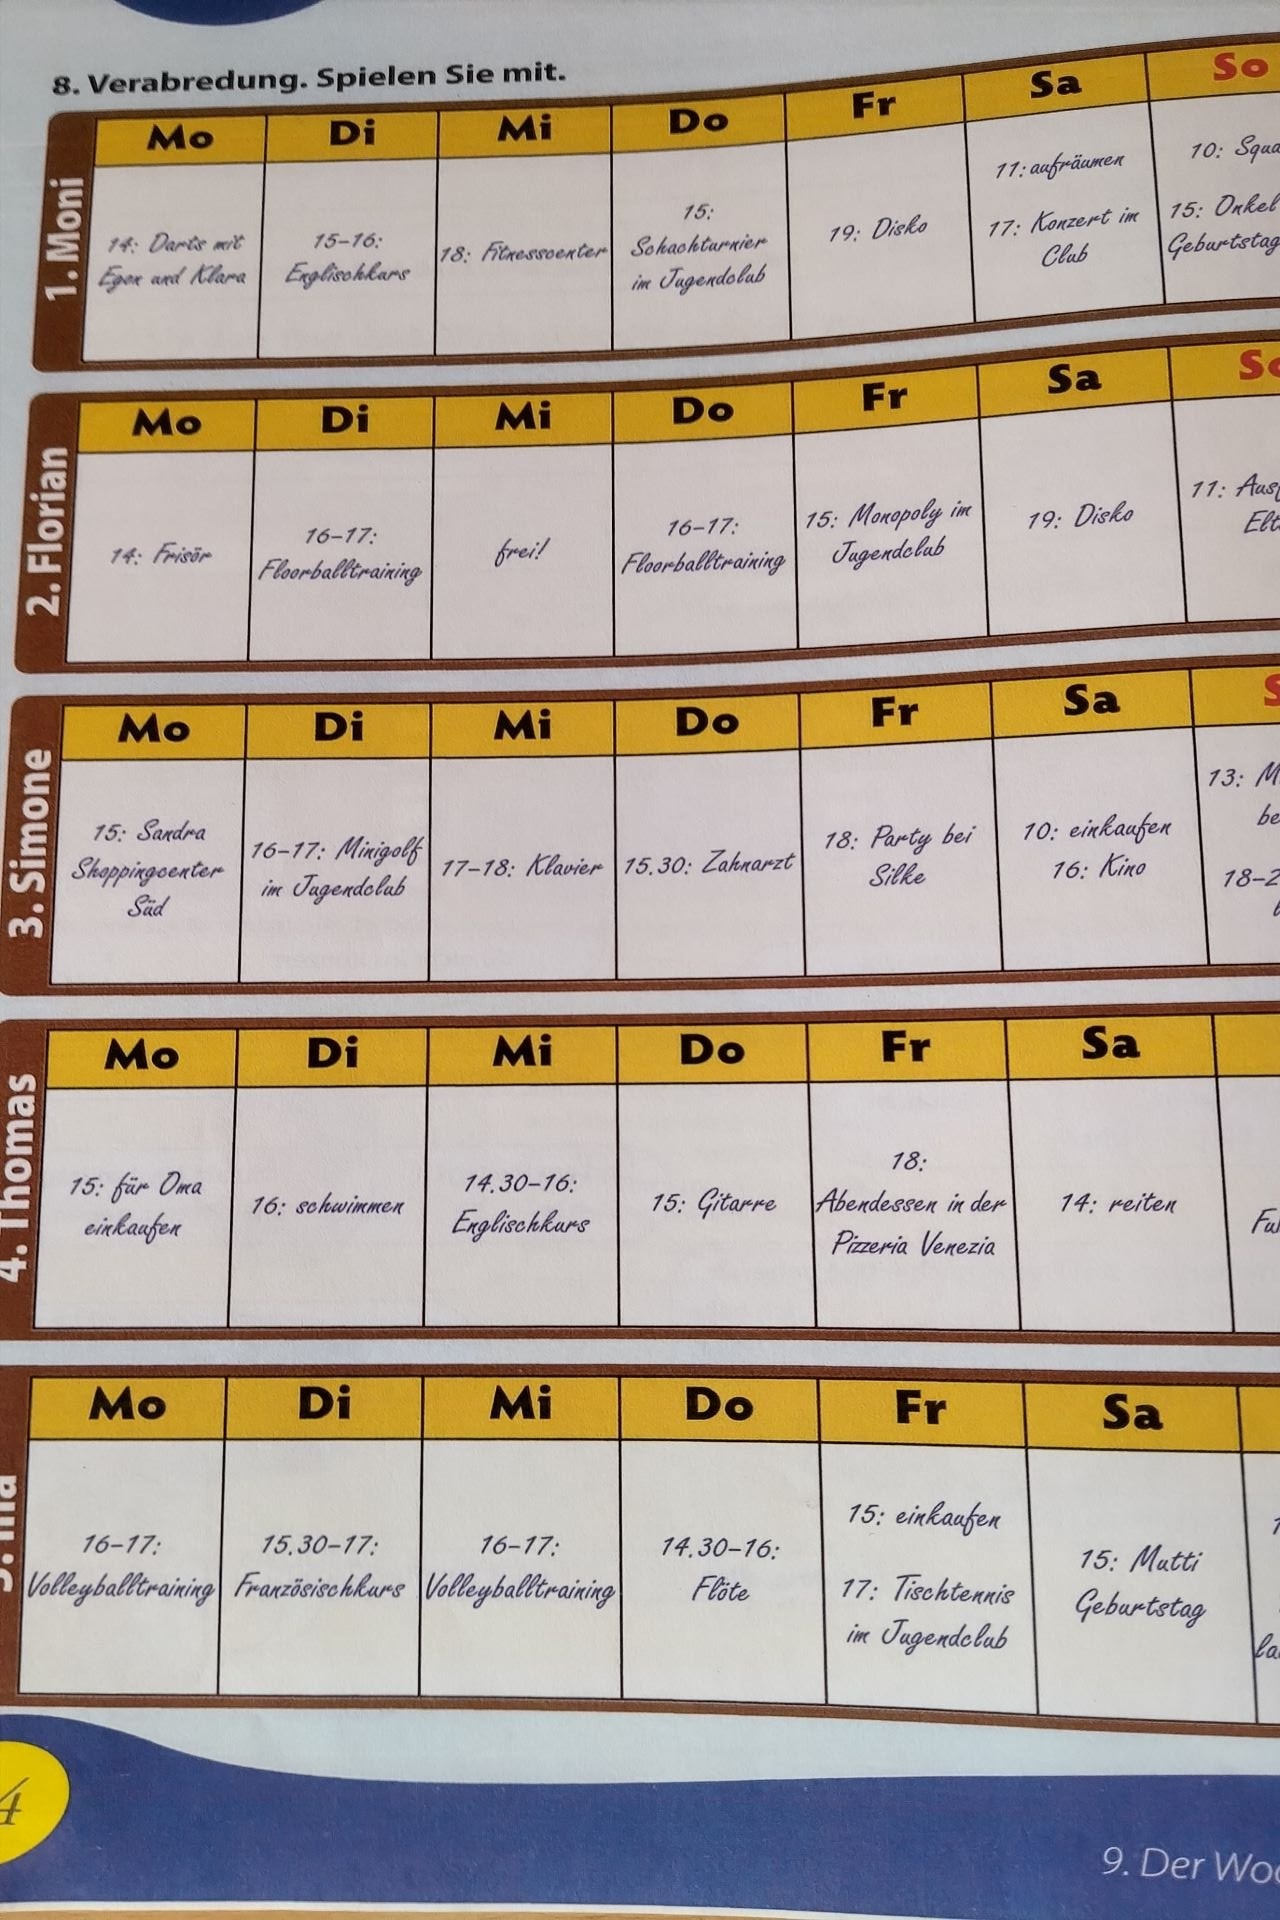 8. Verabredung. Spielen Sie mit.
1. Moni
Mo Di Mi Do Fr Sa So
14: Darts mit
Egon und Klara
15–16:
Englischkurs
18: Fitnesscenter
15:
Schachturnier
im Jugendclub
19: Disko
11: aufräumen
17: Konzert im
Club
10:
15: Onkel
Geburtstag
2. Florian
Mo Di Mi Do Fr Sa
14: Frisör
16–17:
Floorballtraining
frei!
16–17:
Floorballtraining
15: Monopoly im
Jugendclub
19: Disko
11:
3. Simone
Mo Di Mi Do Fr Sa
15: Sandra
Shoppingcenter
Süd
16–17: Minigolf
im Jugendclub
17–18: Klavier
15.30: Zahnarzt
18: Party bei
Silke
10: einkaufen
16: Kino
13:
4. Thomas
Mo Di Mi Do Fr Sa
15: für Oma
einkaufen
16: schwimmen
14.30–16:
Englischkurs
15: Gitarre
18:
Abendessen in der
Pizzeria Venezia
14: reiten
Mo Di Mi Do Fr Sa
16–17:
Volleyballtraining
15.30–17:
Französischkurs
16–17:
Volleyballtraining
14.30–16:
Flöte
15: einkaufen
17: Tischtennis
im Jugendclub
15: Mutti
Geburtstag
9. Der